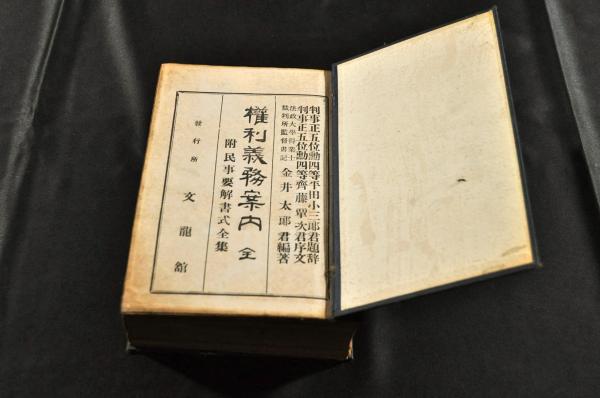 判事正五位勳四等平田小三郎君題辞
判事正五位勳四等齊藤鞏次君序文
法政大學得業士
裁判所監督書記
金井太郎君編著
權利義務案内 全
附民事要解書式全集
發行所 文龍舘